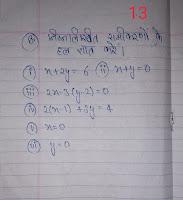 13
(8) निम्नलिखित समीकरणों के
हल ज्ञात करें।
(i) x+2y=6 (ii) x+y=0
(iii) 2x-3(y-2)=0
(iv) 2(x-1)+3y=4
(v) x=0
(vi) y=0